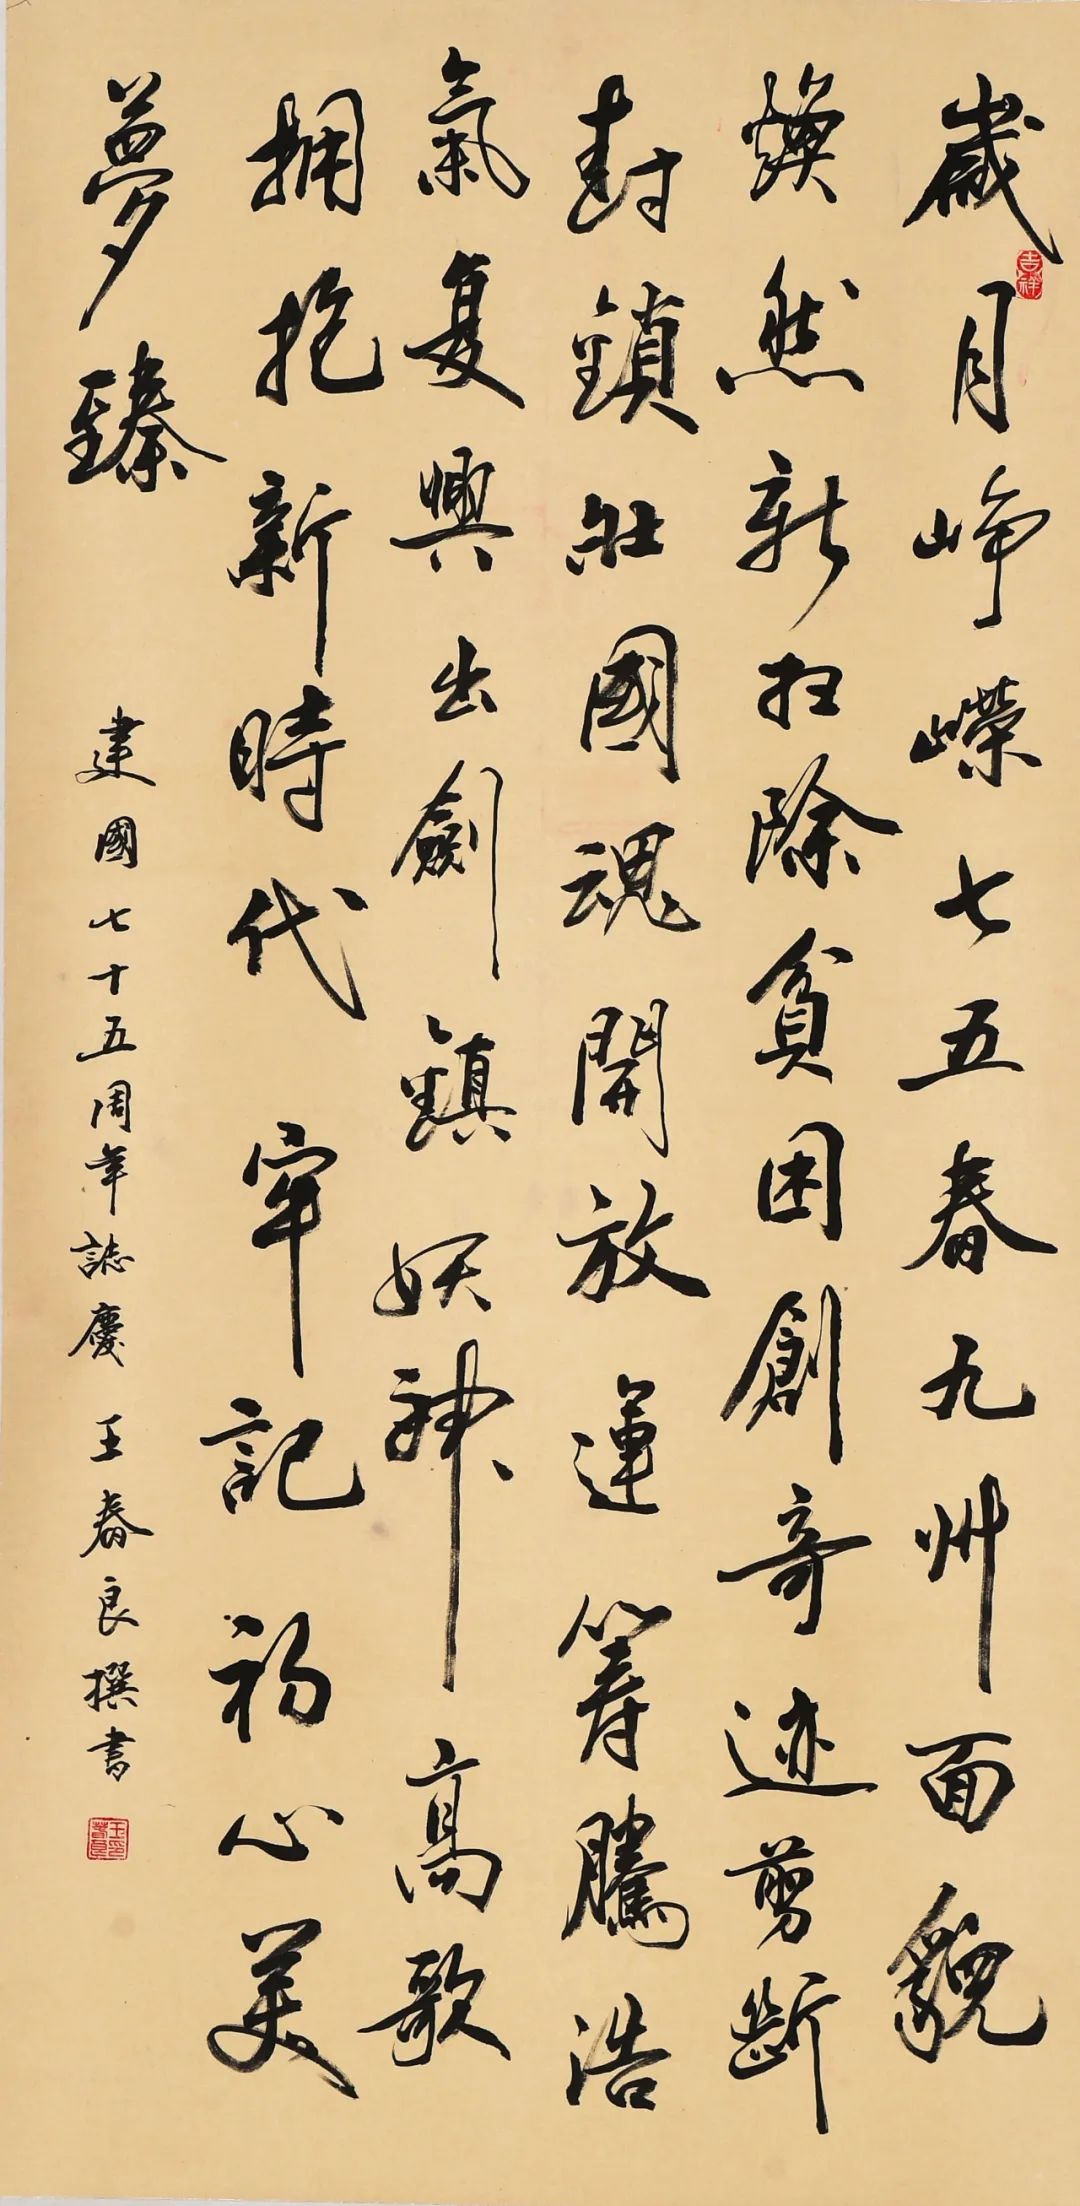 歲月崢嶸七五春九州面貌
煥然新扫除貧困創奇迹剪斷
封鎖壯國魂開放運籌騰浩
氣复興出劍鎮妖神高歌
拥抱新時代牢記初心美
夢臻
建國七十五周年誌慶 王春良撰書
吉祥